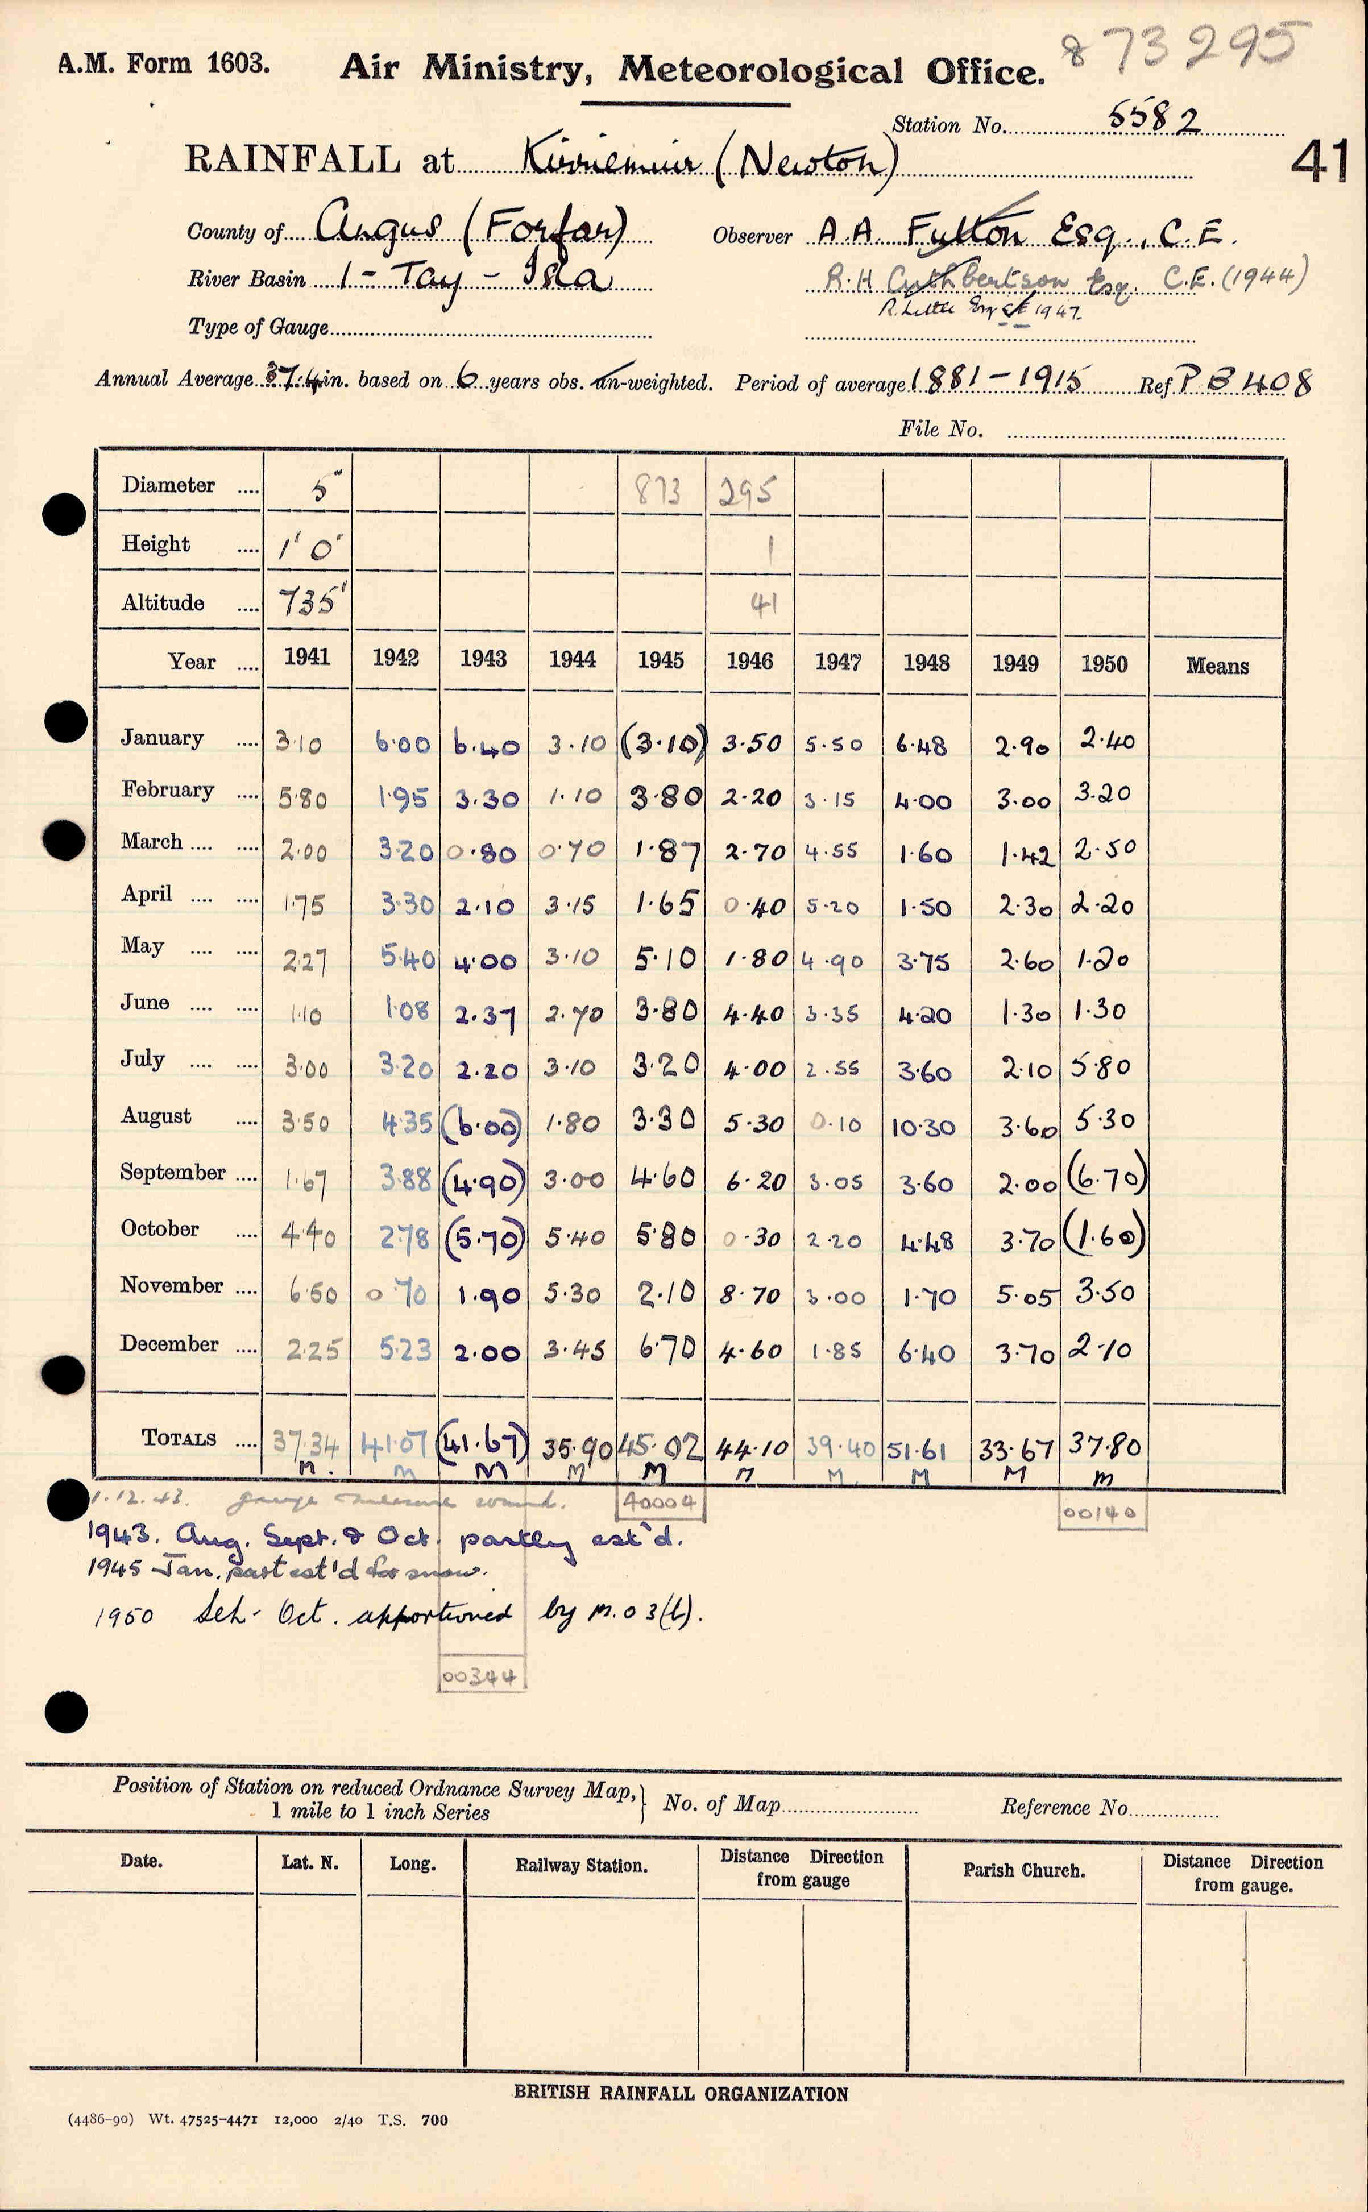 873295
A.M. Form 1603. Air Ministry, Meteorological Office.
Station No. 5582
41
RAINFALL at Kirriemuir (Newton)
County of Angus (Forfar) Observer A.A. Fulton Esq., C.E.
River Basin 1 - Tay - Isla R.H Cuthbertson Esq. C.E. (1944)
R. Little Esq CE 1947.
Type of Gauge
Annual Average 37.4 in. based on 6 years obs. un-weighted. Period of average 1881-1915 Ref P B 408
File No.
Diameter .... 5" 873 295
Height .... 1' 0" 1
Altitude .... 735' 41
Year .... 1941 1942 1943 1944 1945 1946 1947 1948 1949 1950 Means
January .... 3.10 6.00 6.40 3.10 (3.10) 3.50 5.50 6.48 2.90 2.40
February .... 5.80 1.95 3.30 1.10 3.80 2.20 3.15 4.00 3.00 3.20
March .... .... 2.00 3.20 0.80 0.70 1.87 2.70 4.55 1.60 1.42 2.50
April .... .... 1.75 3.30 2.10 3.15 1.65 0.40 5.20 1.50 2.30 2.20
May .... .... 2.27 5.40 4.00 3.10 5.10 1.80 4.90 3.75 2.60 1.20
June .... .... 1.10 1.08 2.37 2.70 3.80 4.40 3.35 4.20 1.30 1.30
July .... .... 3.00 3.20 2.20 3.10 3.20 4.00 2.55 3.60 2.10 5.80
August .... 3.50 4.35 (6.00) 1.80 3.30 5.30 0.10 10.30 3.60 5.30
September .... 1.67 3.88 (4.90) 3.00 4.60 6.20 3.05 3.60 2.00 (6.70)
October .... 4.40 2.78 (5.70) 5.40 5.80 0.30 2.20 4.48 3.70 (1.60)
November .... 6.50 0.70 1.90 5.30 2.10 8.70 3.00 1.70 5.05 3.50
December .... 2.25 5.23 2.00 3.45 6.70 4.60 1.85 6.40 3.70 2.10
TOTALS .... 37.34 41.07 (41.67) 35.90 45.02 44.10 39.40 51.61 33.67 37.80
M. M M M M M M. M M M
1.12.43. gauge measure
40004
00140
1943. Aug. Sept. & Oct. partly est'd.
1945 Jan. part est'd for snow.
1950 Sep - Oct. apportioned by M.O 3(b).
00344
Position of Station on reduced Ordnance Survey Map,
1 mile to 1 inch Series
No. of Map Reference No.
Date. Lat. N. Long. Railway Station. Distance Direction from gauge Parish Church. Distance Direction from gauge.
BRITISH RAINFALL ORGANIZATION
(4486-90) Wt. 47525-4471 12,000 2/40 T.S. 700